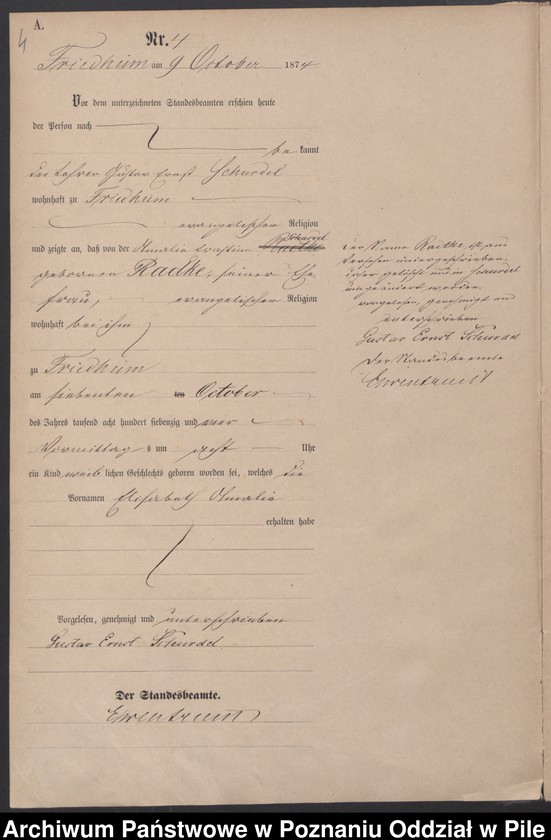 A.
4
Nr. 4
Friedheim am 9 October 1874
Vor dem unterzeichneten Standesbeamten erschien heute
der Person nach
be kannt
der Lehrer Gustav Ernst Schurdel
wohnhaft zu Friedheim
evangelischer Religion
Schurdel
und zeigte an, daß von der Amalie Ernstine Radtke
geborenen Radke, seiner Ehe
frau, evangelischer Religion
wohnhaft bei ihm
zu Friedheim
am siebenten ten October
des Jahres tausend acht hundert siebenzig und vier
Vormittag s um acht Uhr
ein Kind weib lichen Geschlechts geboren worden sei, welches die
Vornamen Elisabeth Amalie
erhalten habe
Vorgelesen, genehmigt und unterschrieben
Gustav Ernst Schurdel
Der Standesbeamte.
Ehrentraut
Der Name Radtke ist aus
Versehen niedergeschrieben,
daher gelöscht und in Schurdel
umgeändert worden.
vorgelesen, genehmigt und
unterschrieben
Gustav Ernst Schurdel
Der Standesbeamte
Ehrentraut
Archiwum Państwowe w Poznaniu Oddział w Pile